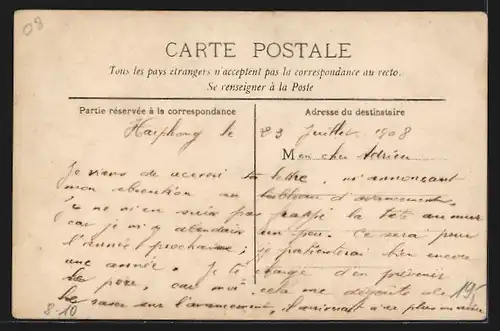 08
CARTE POSTALE
Tous les pays étrangers n'acceptent pas la correspondance au recto.
Se renseigner à la Poste
Partie réservée à la correspondance
Adresse du destinataire
Haïphong le 23 Juillet 1908
Mon cher Adrien
Je viens de recevoir ta lettre, m'annonçant
mon au tableau d'avancement,
je ne m'en suis pas frappé la tête au mur
car je m'y attendais un peu. Ce sera pour
l'année prochaine; je patienterai bien encore
une année. Je te charge d'en prévenir
le père, car moi cela me dégoûte de
sur l'avancement, il n'aurait plus
8-10
19,-